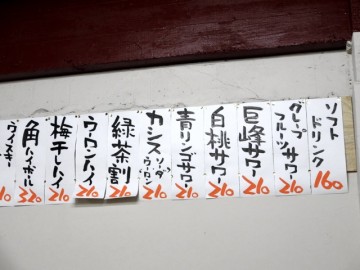 ソフトドリンク
160
グレープフルーツサワー
210
巨峰サワー
210
白桃サワー
210
青リンゴサワー
210
カシス ソーダ ウーロン
210
緑茶割
210
ウーロンハイ
210
梅干しハイ
210
角ハイボール
320
ウイスキー